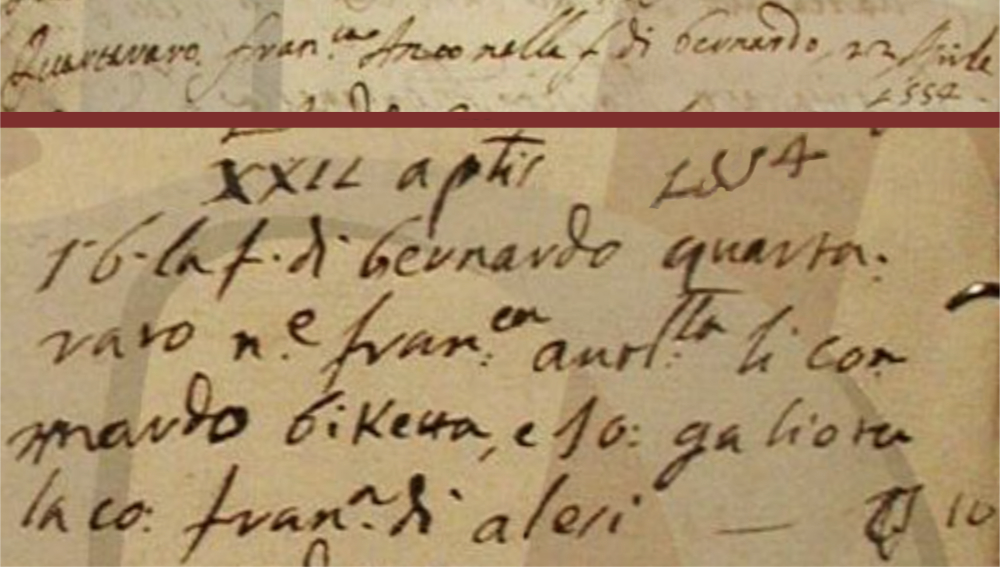 Quartararo fran.ca Antonella f di bernardo, 22 Aprile
1554
XXII aptis 1554
16. la f. di bernardo quarta.
raro n.e fran.ca antl.lla li con
mardo biKetta, e Jo: galiota
la co: fran.a di alesi — 10